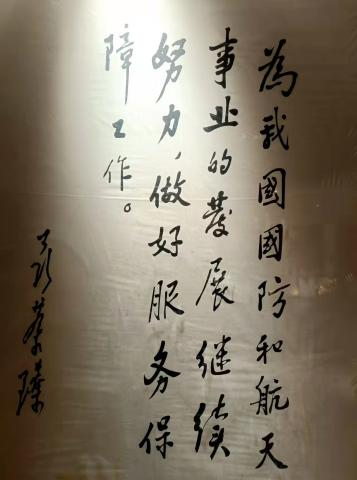 為我國國防和航天
事业的發展继續
努力，做好服务保
障工作。